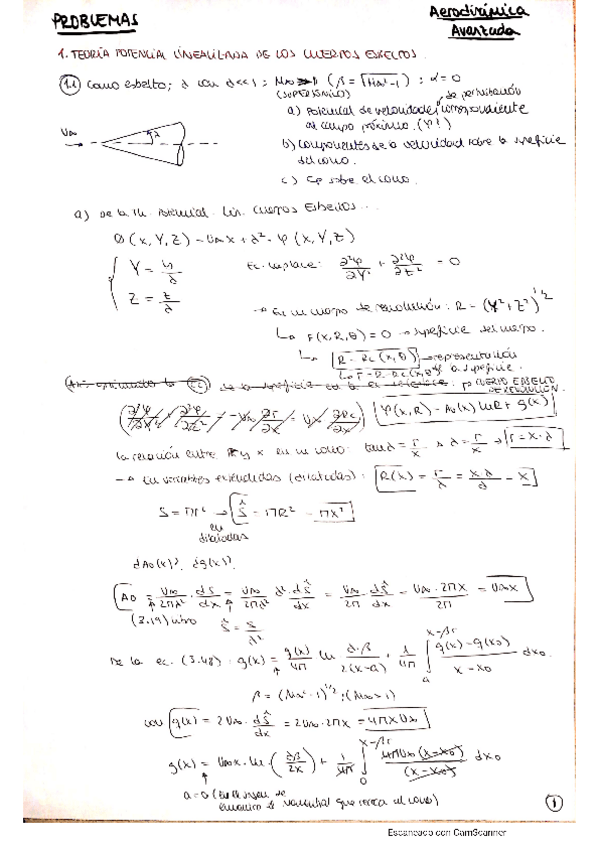 PROBLEMAS
Aerodinámica
Avanzada
1. TEORÍA POTENCIAL LINEALIZADA DE LOS CUERPOS ESBELTOS.
1.1 Cono esbelto; λ con λ<<1; M∞>1 (β = √(M∞²-1)); α=0
(SUPERSÓNICO)
a) Potencial de velocidades de perturbación correspondiente
al campo próximo. (φ?)
U∞
λ
b) Componentes de la velocidad sobre la superficie
del cono.
c) Cp sobre el cono.
a) De la th. Potencial Lin. Cuerpos Esbeltos...
Φ(x,Y,Z) = U∞x + λ²·φ(x,Y,Z)
Y = y/λ
Z = z/λ
Ec. Laplace: ∂²φ/∂Y² + ∂²φ/∂Z² = 0
→ En un cuerpo de revolución: R = (Y²+Z²)^1/2
↳ F(x,R,θ) = 0 → superficie del cuerpo.
R = Rc(x,θ) → representación
la superficie.
CUERPO ESBELTO
DE REVOLUCIÓN
φ(x,R) = A0(x) ln R + g(x)
la relación entre r y x en un cono: tan λ = r/x ≈ λ = r/x → r = x·λ
→ En variables extendidas (dilatadas): R(x) = r/λ = xλ/λ = x
S = πr² → Ŝ = πR² = πx²
en
dilatadas
¿A0(x)? ¿g(x)?
A0 = U∞/2πλ² · dS/dx = U∞/2πλ² λ² · dŜ/dx = U∞/2π · dŜ/dx = U∞·2πx/2π = U∞x
(3.19) libro Ŝ = S/λ²
De la ec. (3.48): g(x) = q(x)/4π ln λ·β/2(x-a) + 1/4π ∫ q(x)-q(x0)/x-x0 dx0
x-βr
a
β = (M∞²-1)^1/2; (M∞>1)
con q(x) = 2U∞ · dŜ/dx = 2U∞·2πx = 4πxU∞
g(x) = U∞x·ln(λβ/2x) + 1/4π ∫ 4πU∞(x-x0)/(x-x0) dx0
x-βr
0
1
Escaneado con CamScanner